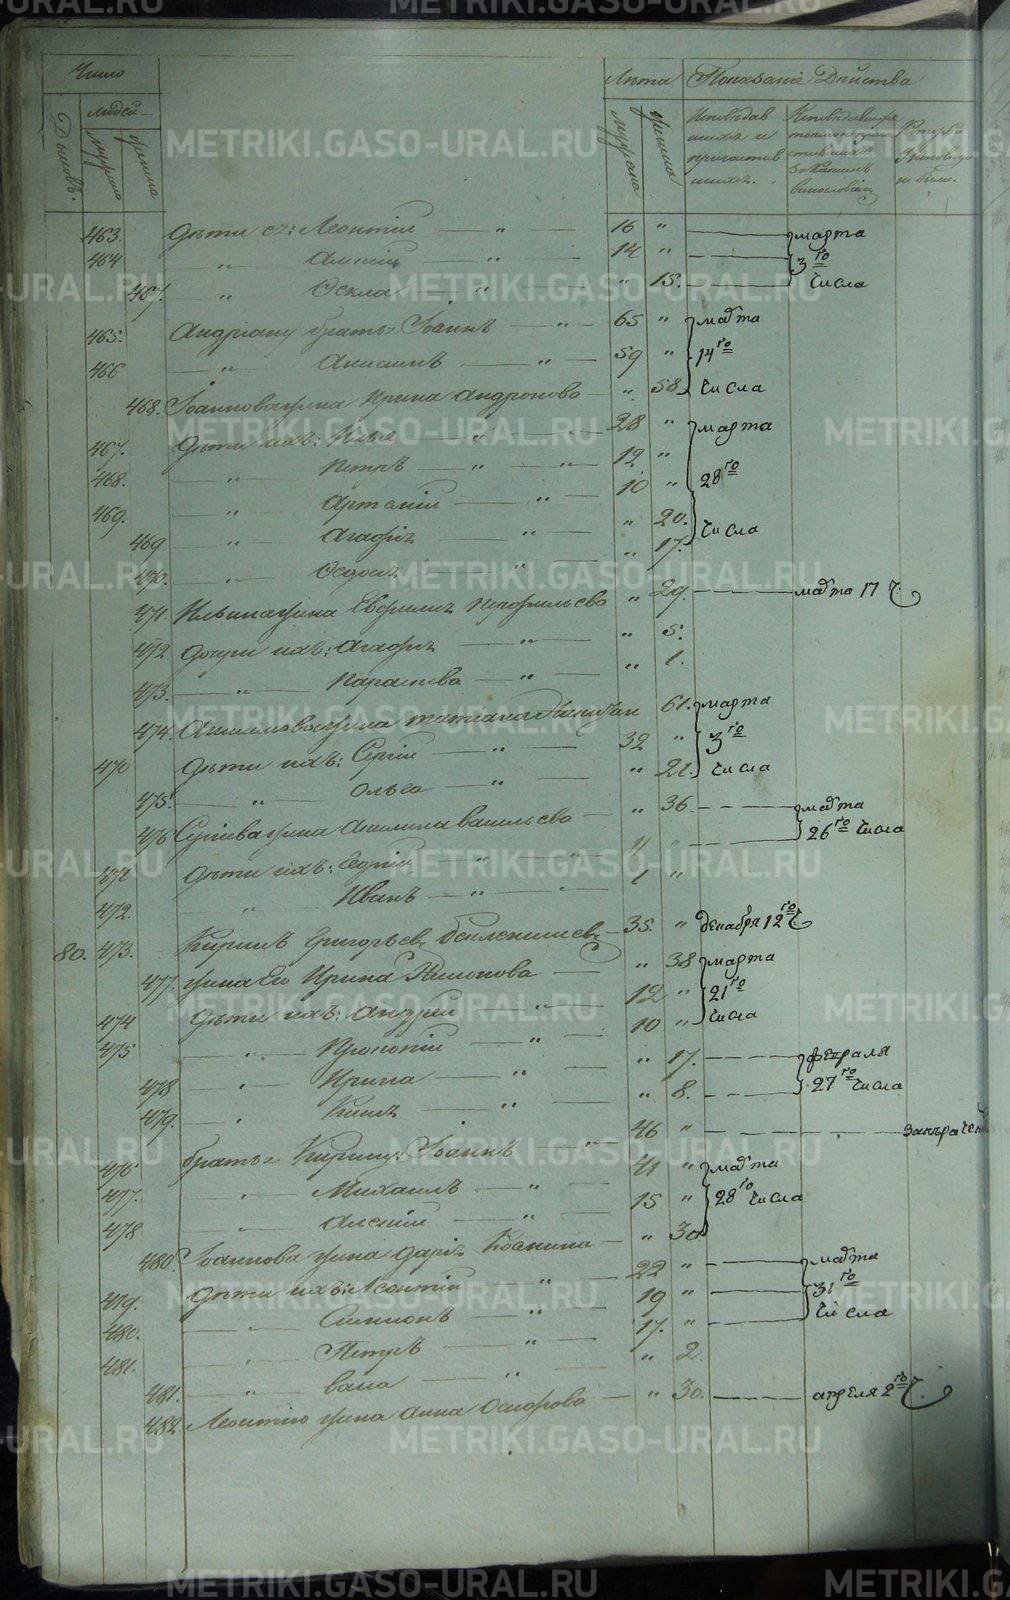 Число
Лѣта Показаніе Действа
Домовъ.
людей
мужеска
женска
мужеска
женска
Исповѣдав
шихся и
причастив
шихся.
не были.
463. Дѣти ея: Леонтій — „ — 16 „ марта
464 „ — „ — 14 „ 3го
467. „ — „ 15. числа
465. Андріану братья Іоаннъ — „ — 65 „ марта
466 „ — „ — 59 „ 14го
468. Іоаннова жена Ирина Андронова — „ 58. числа
467. Дѣти ихъ: Илья — „ — 28 „ марта
468. „ Петръ — „ — 12 „ 28го
469. „ Артемій — „ — 10 „
469. „ Агафья — „ „ 20. числа
470. „ Федосья — „ „ 17.
471. Ильина жена Евфимия Перфильева „ 29. марта 17 ч.
472 Дочери ихъ: Агафья — „ — „ 5.
473. „ Параскева — „ — „ 1.
474. Жена Татіана 61. марта
470 Дѣти ихъ: Сергій — „ — 32 „ 3го
475. „ Ольга — „ „ 21. числа
476 Сергіева жена Акилина Васильева — „ 36. марта
471 Дѣти ихъ: Георгій — „ 4 „ 26го числа
472. „ Иванъ — „ — 1 „
80. 473. Кирилъ Григорьевъ — 35. „ декабря 12го ч
477. жена Его Ирина Филипова — „ 38 марта
474 Дѣти ихъ: Андрей — „ — 12 „ 21го
475 „ Прокопій — „ 10 „ числа
478 „ Ирина — „ „ 17. февраля
479. „ — „ „ 8. 27го числа
476 братья Кирилу: Іоаннъ „ 46 „
477. „ Михаилъ — „ 41 „ марта
478 „ Алексій — „ 15 „ 28го числа
480 Іоаннова жена Дарья — „ 30
479. Дѣти ихъ: Леонтій „ — 22 „ марта
480. „ Симионъ — „ 19 „ 31го
481. „ Петръ — „ 17. „ числа
481. „ — „ „ 2.
482 Леонтію жена Анна Осипова — „ 30. апреля 2го ч.
METRIKI.GASO-URAL.RU